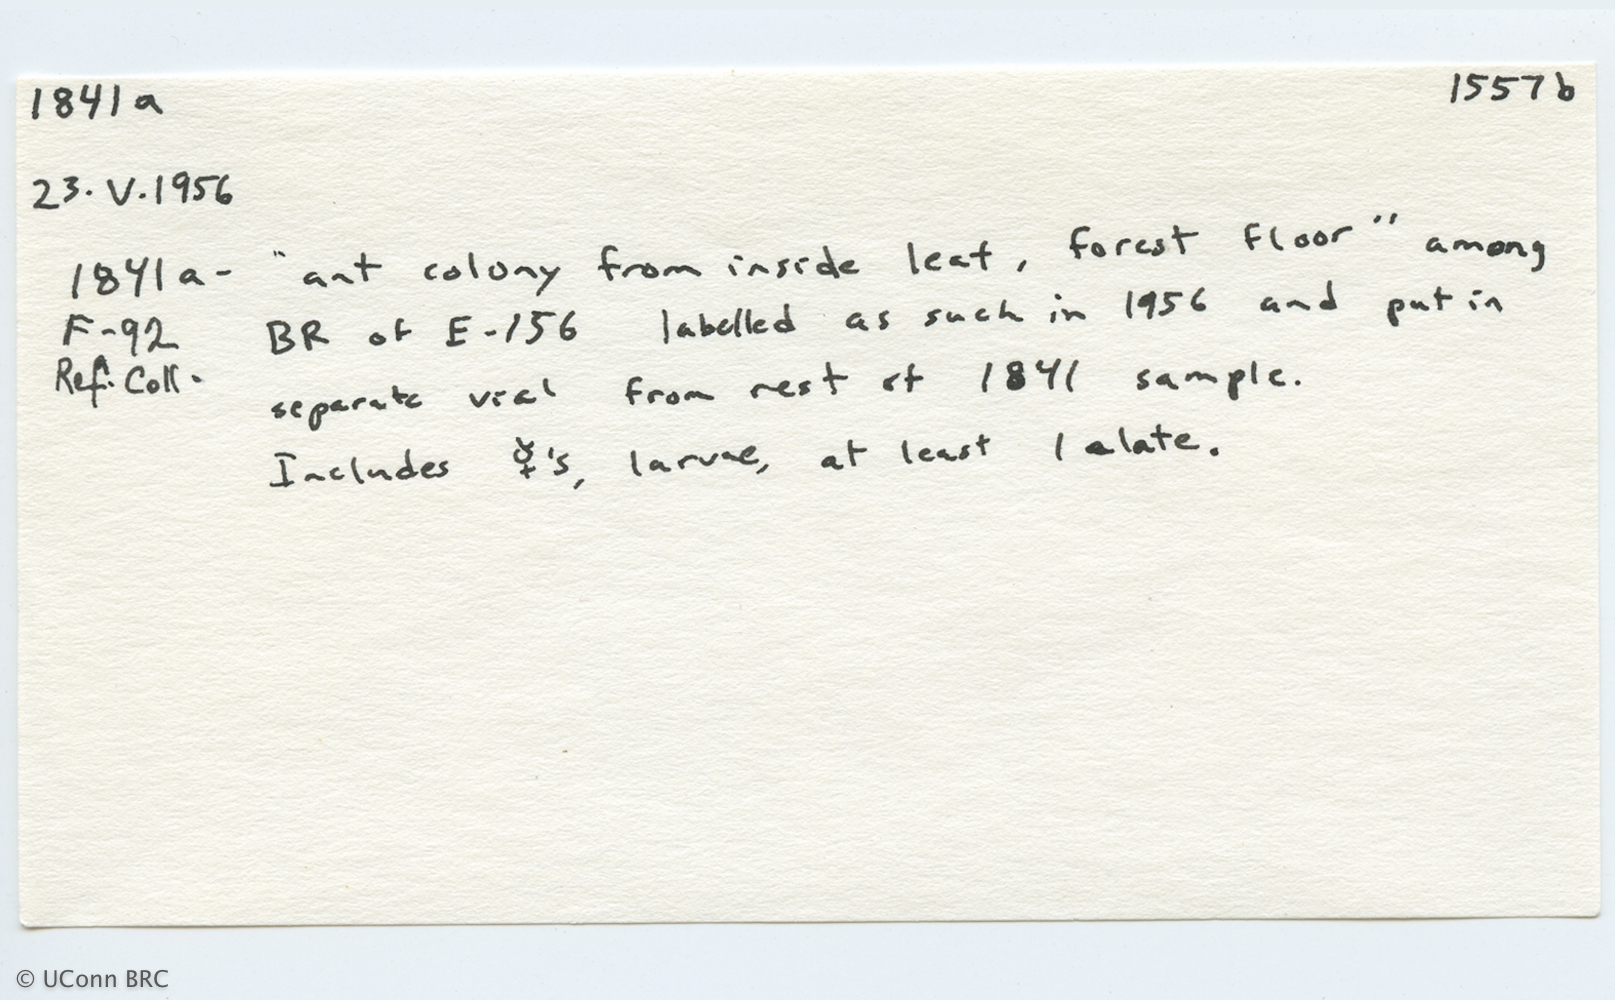 1841a 1557b
23.V.1956
1841a- "ant colony from inside leaf, forest floor" among
F-92 BR of E-156 labelled as such in 1956 and put in
Ref. Coll. separate vial from rest of 1841 sample.
Includes ☿'s, larvae, at least 1 alate.
© UConn BRC